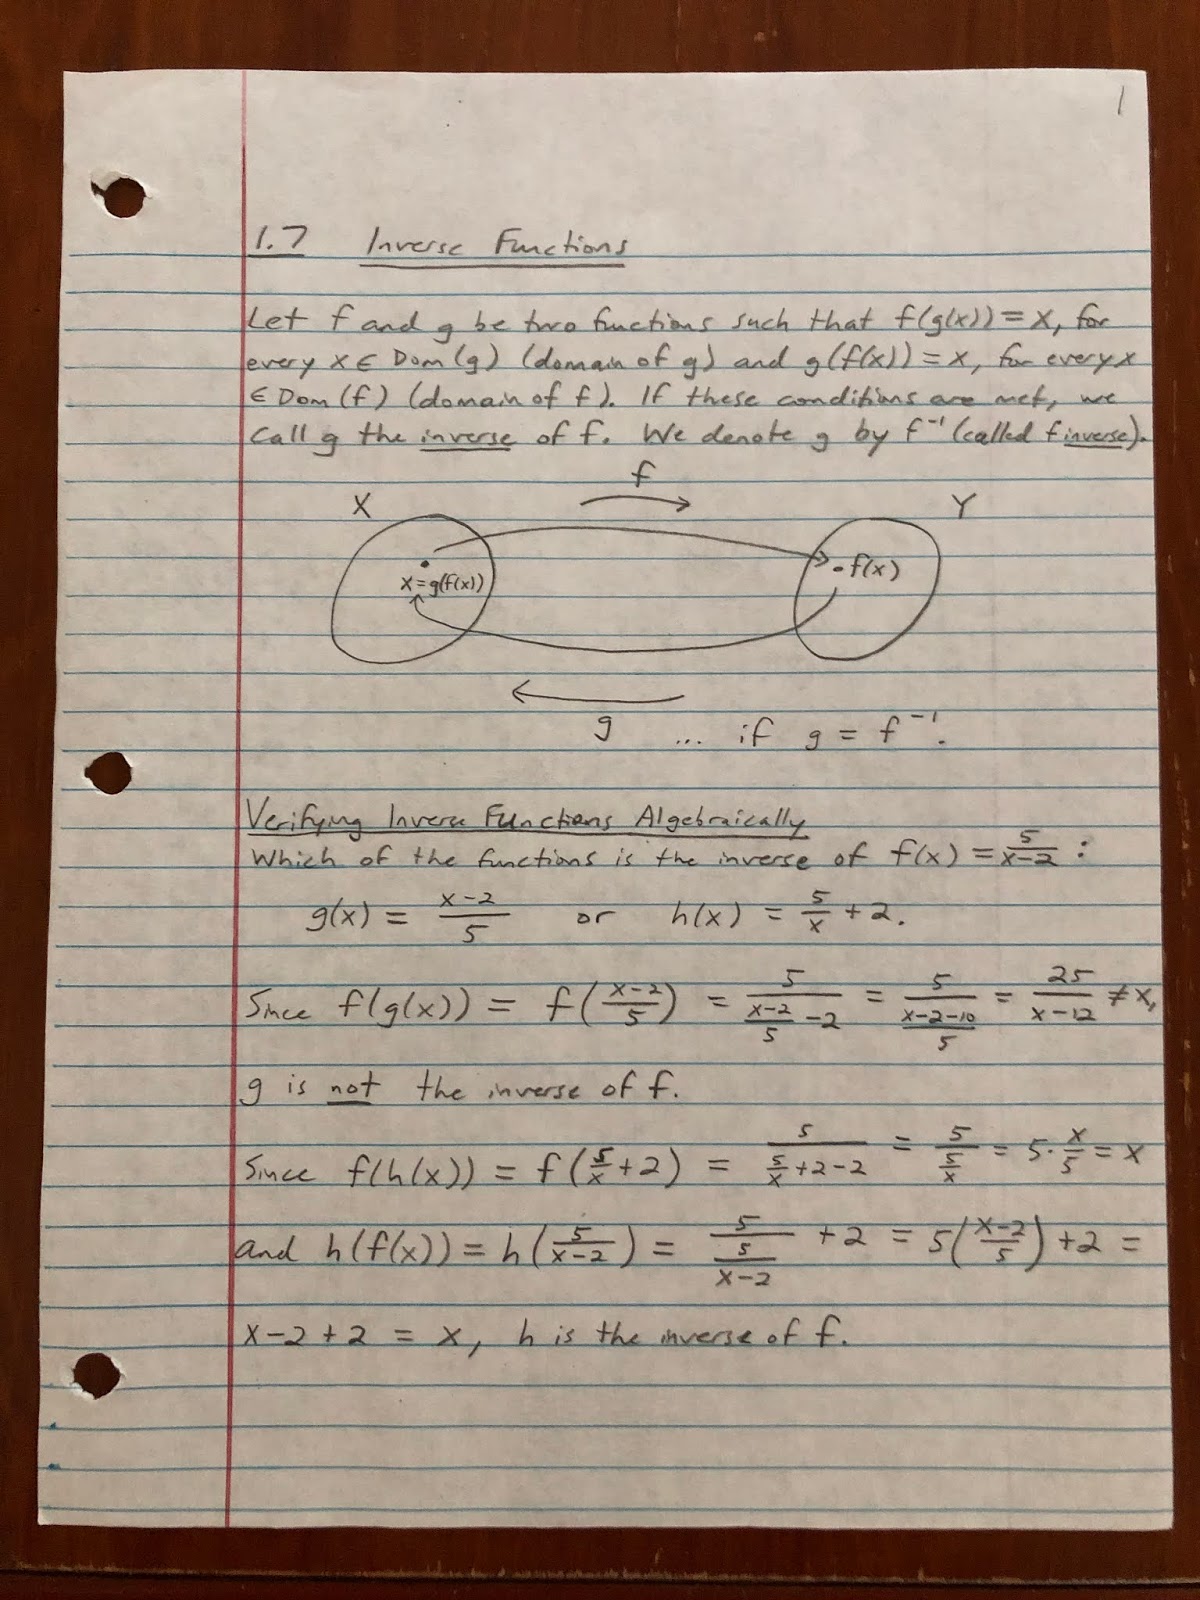 1
1.7 Inverse Functions
Let f and g be two functions such that f(g(x)) = x, for
every x ∈ Dom(g) (domain of g) and g(f(x)) = x, for every x
∈ Dom(f) (domain of f). If these conditions are met, we
call g the inverse of f. We denote g by f⁻¹ (called f inverse).
f
X Y
x = g(f(x)) f(x)
g ... if g = f⁻¹.
Verifying Inverse Functions Algebraically
Which of the functions is the inverse of f(x) = 5/(x-2) :
g(x) = (x-2)/5 or h(x) = 5/x + 2.
Since f(g(x)) = f((x-2)/5) = 5/((x-2)/5 - 2) = 5/((x-2-10)/5) = 25/(x-12) ≠ x,
g is not the inverse of f.
Since f(h(x)) = f(5/x + 2) = 5/(5/x + 2 - 2) = 5/(5/x) = 5 · x/5 = x
and h(f(x)) = h(5/(x-2)) = 5/(5/(x-2)) + 2 = 5((x-2)/5) + 2 =
x - 2 + 2 = x, h is the inverse of f.